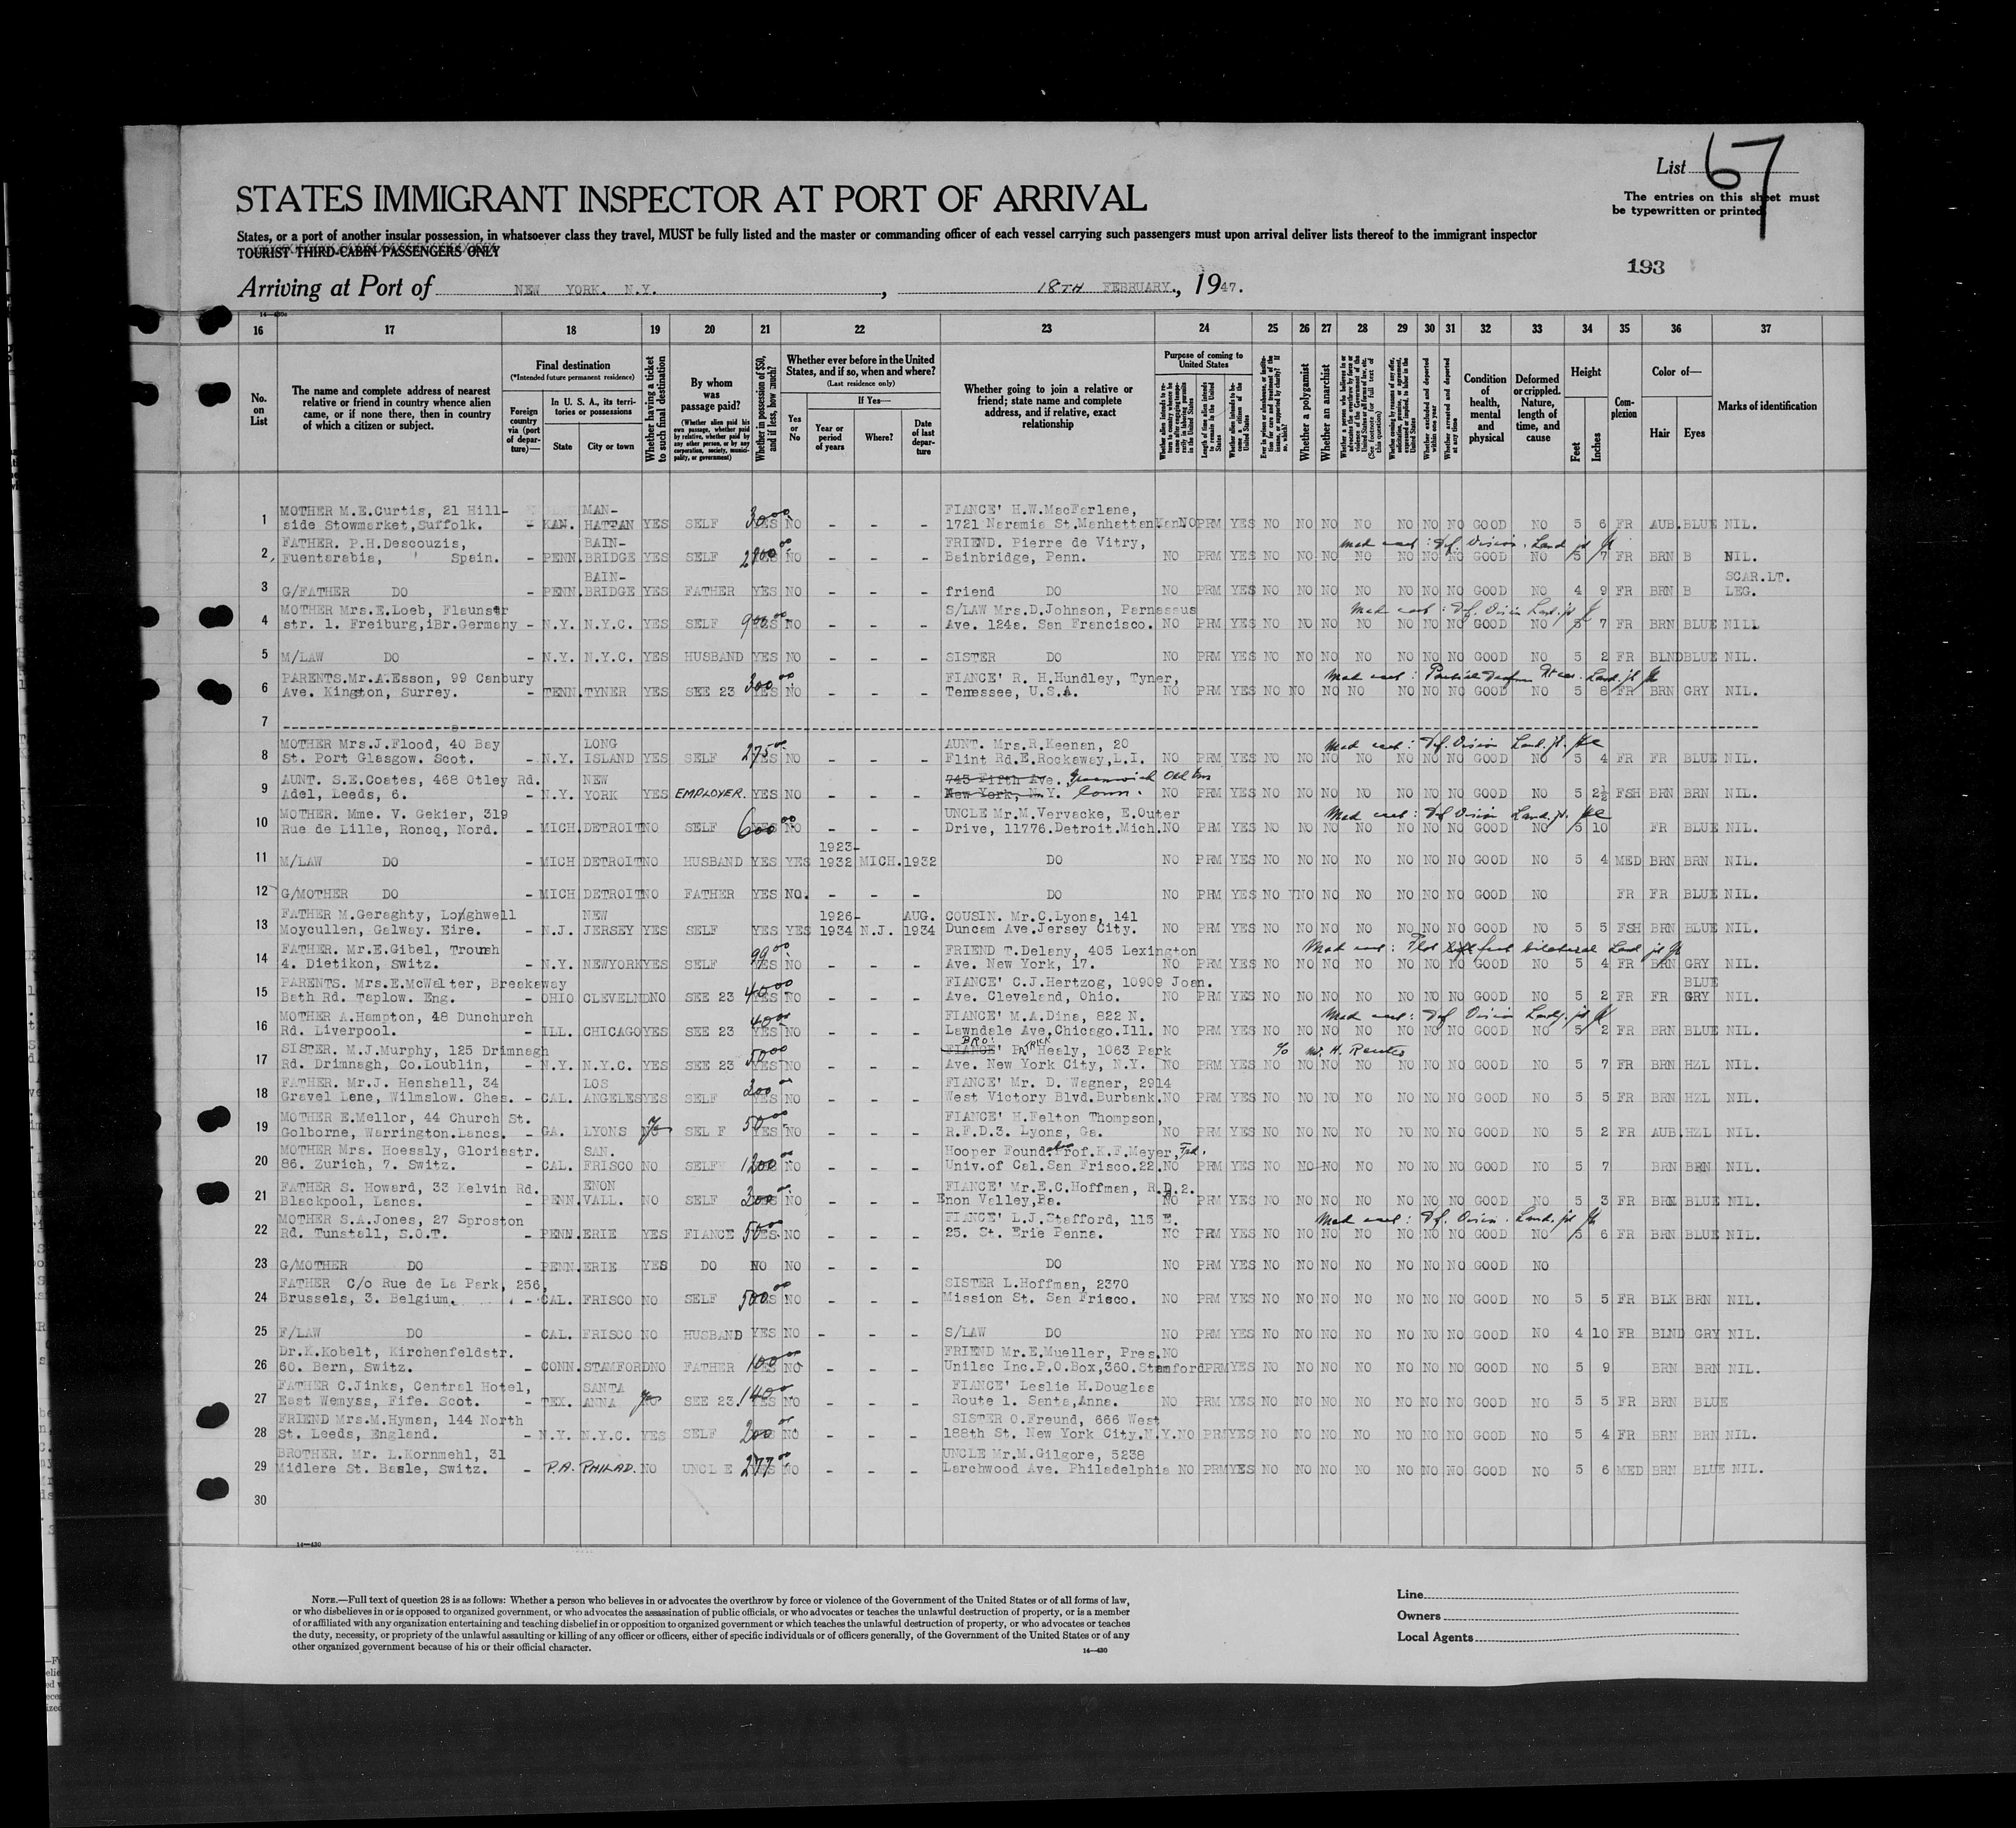 List 67
The entries on this sheet must
be typewritten or printed
STATES IMMIGRANT INSPECTOR AT PORT OF ARRIVAL
States, or a port of another insular possession, in whatsoever class they travel, MUST be fully listed and the master or commanding officer of each vessel carrying such passengers must upon arrival deliver lists thereof to the immigrant inspector
TOURIST THIRD-CABIN PASSENGERS ONLY
193
Arriving at Port of NEW YORK. N.Y., 18TH FEBRUARY., 1947.
16 17 18 19 20 21 22 23 24 25 26 27 28 29 30 31 32 33 34 35 36 37
No. on List
The name and complete address of nearest relative or friend in country whence alien came, or if none there, then in country of which a citizen or subject.
Final destination
(*Intended future permanent residence)
Foreign country via (port of departure)—
In U. S. A., its territories or possessions
State City or town
Whether having a ticket to such final destination
By whom was passage paid?
(Whether alien paid his own passage, whether paid by relative, whether paid by any other person, or by any corporation, society, municipality, or government)
Whether in possession of $50, and if less, how much?
Whether ever before in the United States, and if so, when and where?
(Last residence only)
Yes or No
If Yes—
Year or period of years Where? Date of last departure
Whether going to join a relative or friend; state name and complete address, and if relative, exact relationship
Purpose of coming to United States
Whether a polygamist
Whether an anarchist
Condition of health, mental and physical
Deformed or crippled. Nature, length of time, and cause
Height
Feet Inches
Complexion
Color of—
Hair Eyes
Marks of identification
1 MOTHER M.E.Curtis, 21 Hill- MAN- 3000 FIANCE' H.W.MacFarlane,
side Stowmarket,Suffolk. - KAN. HATTAN YES SELF YES NO - - - 1721 Naramia St.Manhattan Kan NO PRM YES NO NO NO NO NO NO NO GOOD NO 5 6 FR AUB. BLUE NIL.
2 FATHER. P.H.Descouzis, BAIN- FRIEND. Pierre de Vitry,
Fuentarabia, Spain. - PENN. BRIDGE YES SELF YES NO - - - Bainbridge, Penn. NO PRM YES NO NO NO NO NO NO NO GOOD NO 5 7 FR BRN B NIL.
3 BAIN- SCAR.LT.
G/FATHER DO - PENN. BRIDGE YES FATHER YES NO - - - friend DO NO PRM YES NO NO NO NO NO NO NO GOOD NO 4 9 FR BRN B LEG.
4 MOTHER Mrs.E.Loeb, Flaunstr S/LAW Mrs.D.Johnson, Parnassus
str. 1. Freiburg,iBr.Germany - N.Y. N.Y.C. YES SELF YES NO - - - Ave. 124a. San Francisco. NO PRM YES NO NO NO NO NO NO NO GOOD NO 5 7 FR BRN BLUE NILL
5 M/LAW DO - N.Y. N.Y.C. YES HUSBAND YES NO - - - SISTER DO NO PRM YES NO NO NO NO NO NO NO GOOD NO 5 2 FR BLND BLUE NIL.
6 PARENTS.Mr.A.Esson, 99 Canbury 300 FIANCE' R. H.Hundley, Tyner,
Ave. Kingston, Surrey. - TENN. TYNER YES SEE 23 YES NO - - - Tennessee, U.S.A. NO PRM YES NO NO NO NO NO NO NO GOOD NO 5 8 FR BRN GRY NIL.
7
8 MOTHER Mrs.J.Flood, 40 Bay LONG 275 AUNT. Mrs.R.Keenan, 20
St. Port Glasgow. Scot. - N.Y. ISLAND YES SELF YES NO - - - Flint Rd.E.Rockaway,L.I. NO PRM YES NO NO NO NO NO NO NO GOOD NO 5 4 FR FR BLUE NIL.
9 AUNT. S.E.Coates, 468 Otley Rd. NEW 745 Fifth Ave. Greenwich
Adel, Leeds, 6. - N.Y. YORK YES EMPLOYER. YES NO - - - New York, N.Y. Conn. NO PRM YES NO NO NO NO NO NO NO GOOD NO 5 2½ FSH BRN BRN NIL.
10 MOTHER. Mme. V. Gekier, 319 UNCLE Mr.M.Vervacke, E.Outer
Rue de Lille, Roncq, Nord. - MICH. DETROIT NO SELF 600 YES NO - - - Drive, 11776.Detroit.Mich. NO PRM YES NO NO NO NO NO NO NO GOOD NO 5 10 FR BLUE NIL.
11 1923-
M/LAW DO - MICH DETROIT NO HUSBAND YES YES 1932 MICH. 1932 DO NO PRM YES NO NO NO NO NO NO NO GOOD NO 5 4 MED BRN BRN NIL.
12 G/MOTHER DO - MICH DETROIT NO FATHER YES NO. - - - DO NO PRM YES NO NO NO NO NO NO NO GOOD NO FR FR BLUE NIL.
13 FATHER M.Geraghty, Loughwell NEW 1926- AUG. COUSIN. Mr.C.Lyons, 141
Moycullen, Galway. Eire. - N.J. JERSEY YES SELF YES YES 1934 N.J. 1934 Duncam Ave.Jersey City. NO PRM YES NO NO NO NO NO NO NO GOOD NO 5 5 FSH BRN BLUE NIL.
14 FATHER. Mr.E.Gibel, Troush 99 FRIEND T.Delany, 405 Lexington
4. Dietikon, Switz. - N.Y. NEWYORK YES SELF YES NO - - - Ave. New York, 17. NO PRM YES NO NO NO NO NO NO NO GOOD NO 5 4 FR BRN GRY NIL.
15 PARENTS. Mrs.E.McWalter, Breakaway 40 FIANCE' C.J.Hertzog, 10909 Joan. BLUE
Bath Rd. Taplow. Eng. - OHIO CLEVELND NO SEE 23 YES NO - - - Ave. Cleveland, Ohio. NO PRM YES NO NO NO NO NO NO NO GOOD NO 5 2 FR FR GRY NIL.
16 MOTHER A.Hampton, 48 Dunchurch 40 FIANCE' M.A.Dina, 822 N.
Rd. Liverpool. - ILL. CHICAGO YES SEE 23 YES NO - - - Lawndale Ave.Chicago.Ill. NO PRM YES NO NO NO NO NO NO NO GOOD NO 5 2 FR BRN BLUE NIL.
17 SISTER. M.J.Murphy, 125 Drimnagh 50 BRO: FIANCE' PATRICK Healy, 1063 Park
Rd. Drimnagh, Co.Loublin, - N.Y. N.Y.C. YES SEE 23 YES NO - - - Ave. New York City, N.Y. NO PRM YES NO NO NO NO NO NO NO GOOD NO 5 7 FR BRN HZL NIL.
18 FATHER. Mr.J. Henshall, 34 LOS 200 FIANCE' Mr. D. Wagner, 2914
Gravel Lane, Wilmslow. Ches. - CAL. ANGELES YES SELF YES NO - - - West Victory Blvd.Burbank. NO PRM YES NO NO NO NO NO NO NO GOOD NO 5 5 FR BRN HZL NIL.
19 MOTHER E.Mellor, 44 Church St. 50 FIANCE' H.Felton Thompson,
Golborne, Warrington.Lancs. - GA. LYONS SEL F YES NO - - - R.F.D.3. Lyons, Ga. NO PRM YES NO NO NO NO NO NO NO GOOD NO 5 2 FR AUB. HZL NIL.
20 MOTHER Mrs. Hoessly, Gloriastr. SAN. Hooper Foundation Prof.K.F.Meyer,
86. Zurich, 7. Switz. - CAL. FRISCO NO SELF 1200 YES NO - - - Univ.of Cal.San Frisco.22. NO PRM YES NO NO NO NO NO NO NO GOOD NO 5 7 BRN BRN NIL.
21 FATHER S. Howard, 33 Kelvin Rd. ENON FIANCE' Mr.E.C.Hoffman, R.D.2.
Blackpool, Lancs. - PENN. VALL. NO SELF YES NO - - - Enon Valley,Pa. NO PRM YES NO NO NO NO NO NO NO GOOD NO 5 3 FR BRN BLUE NIL.
22 MOTHER S.A.Jones, 27 Sproston FIANCE' L.J.Stafford, 115 E.
Rd. Tunstall, S.O.T. - PENN. ERIE YES FIANCE 50 YES NO - - - 25. St. Erie Penna. NO PRM YES NO NO NO NO NO NO NO GOOD NO 5 6 FR BRN BLUE NIL.
23 G/MOTHER DO - PENN. ERIE YES DO NO NO - - - DO NO PRM YES NO NO NO NO NO NO NO GOOD NO
24 FATHER C/o Rue de La Park, 256, SISTER L.Hoffman, 2370
Brussels, 3. Belgium. - CAL. FRISCO NO SELF 500 YES NO - - - Mission St. San Frisco. NO PRM YES NO NO NO NO NO NO NO GOOD NO 5 5 FR BLK BRN NIL.
25 F/LAW DO - CAL. FRISCO NO HUSBAND YES NO - - - S/LAW DO NO PRM YES NO NO NO NO NO NO NO GOOD NO 4 10 FR BLND GRY NIL.
26 Dr.K.Kobelt, Kirchenfeldstr. FRIEND Mr.E.Mueller, Pres. NO
60. Bern, Switz. - CONN. STAMFORD NO FATHER 100 YES NO - - - Unilac Inc.P.O.Box,360.Stamford PRM YES NO NO NO NO NO NO NO GOOD NO 5 9 BRN BRN NIL.
27 FATHER C.Jinks, Central Hotel, SANTA FIANCE' Leslie H.Douglas
East Wemyss, Fife. Scot. - TEX. ANNA SEE 23. 140 YES NO - - - Route 1. Santa,Anna. NO PRM YES NO NO NO NO NO NO NO GOOD NO 5 5 FR BRN BLUE
28 FRIEND Mrs.M.Hyman, 144 North SISTER O.Freund, 666 West
St. Leeds, England. - N.Y. N.Y.C. YES SELF 200 YES NO - - - 188th St. New York City.N.Y. NO PRM YES NO NO NO NO NO NO NO GOOD NO 5 4 FR BRN BRN NIL.
29 BROTHER. Mr. L.Kornmehl, 31 UNCLE Mr.M.Gilgore, 5238
Midlere St. Basle, Switz. - P.A. PHILAD. NO UNCLE 277 YES NO - - - Larchwood Ave. Philadelphia NO PRM YES NO NO NO NO NO NO NO GOOD NO 5 6 MED BRN BLUE NIL.
30
14—430
NOTE.—Full text of question 28 is as follows: Whether a person who believes in or advocates the overthrow by force or violence of the Government of the United States or of all forms of law,
or who disbelieves in or is opposed to organized government, or who advocates the assassination of public officials, or who advocates or teaches the unlawful destruction of property, or is a member
of or affiliated with any organization entertaining and teaching disbelief in or opposition to organized government or which teaches the unlawful destruction of property, or who advocates or teaches
the duty, necessity, or propriety of the unlawful assaulting or killing of any officer or officers, either of specific individuals or of officers generally, of the Government of the United States or of any
other organized government because of his or their official character.
14—430
Line
Owners
Local Agents